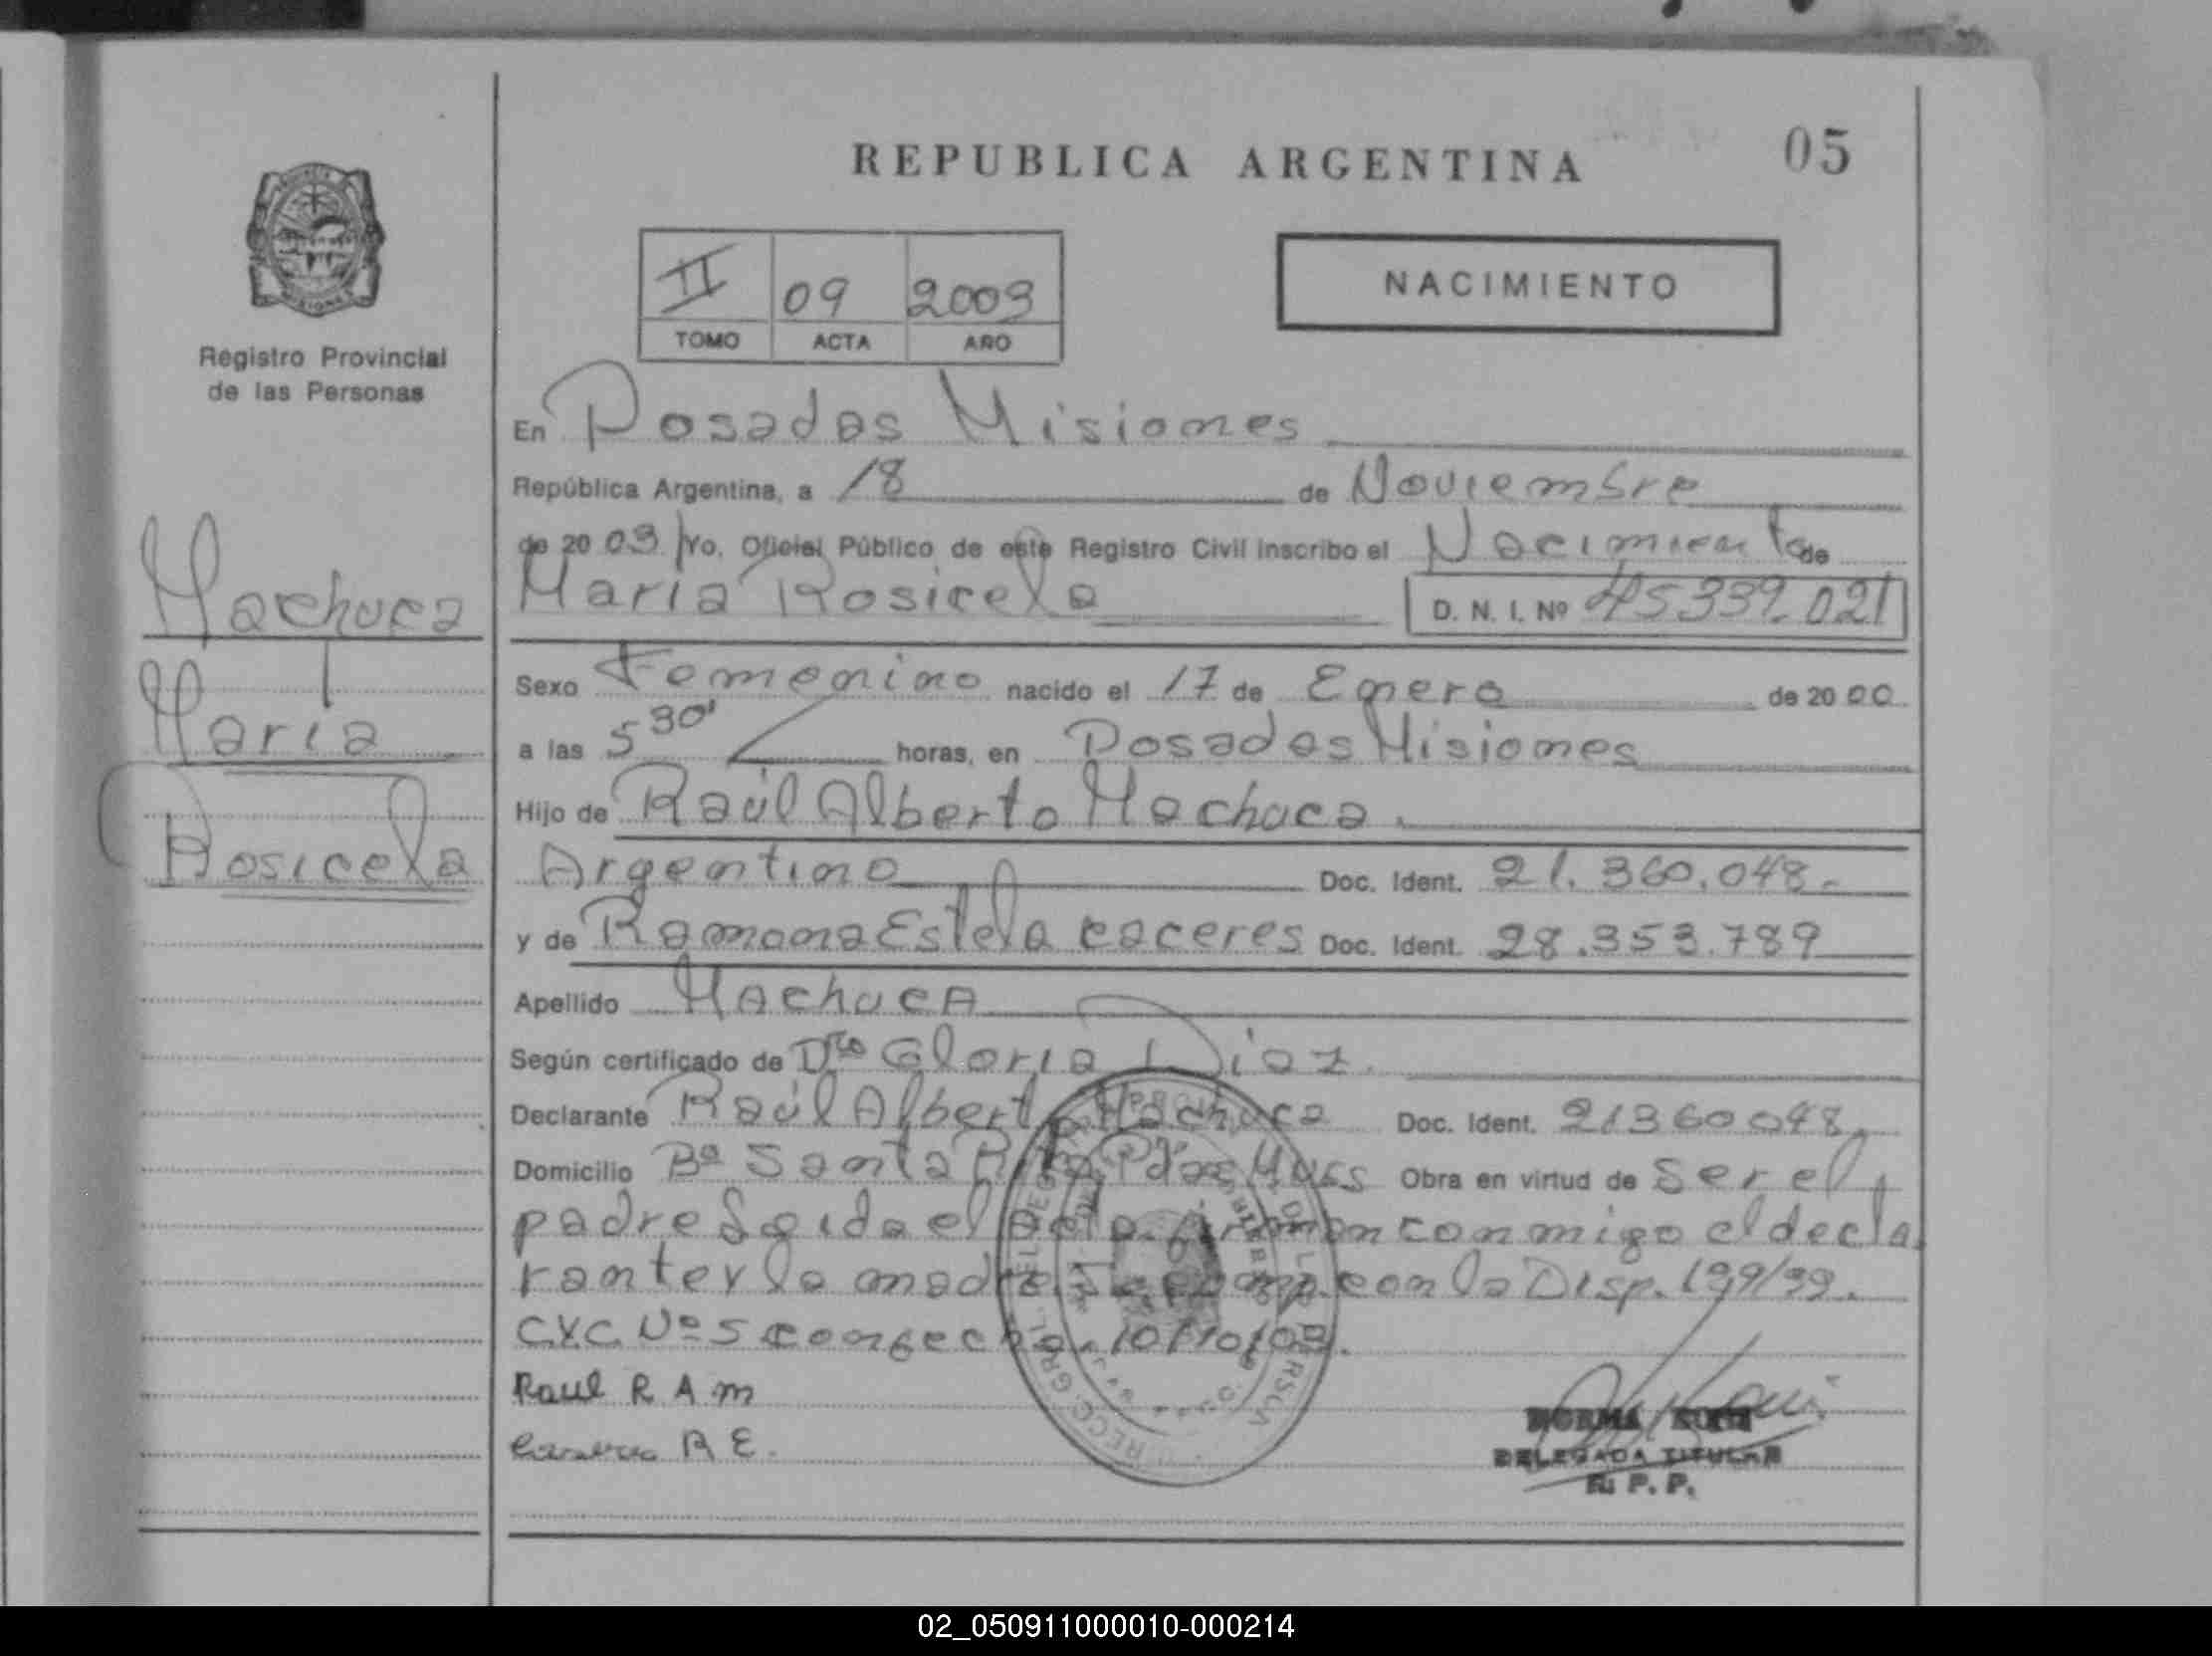 REPUBLICA ARGENTINA
05
II 09 2003
TOMO ACTA AÑO
NACIMIENTO
Registro Provincial
de las Personas
Machuca
Maria
Rosicela
En Posadas Misiones
República Argentina, a 18 de Noviembre
de 2003 Yo. Oficial Público de este Registro Civil inscribo el Nacimiento de
Maria Rosicela D. N. I. Nº 45339.021
Sexo Femenino nacido el 17 de Enero de 2000
a las 5 30' horas, en Posadas Misiones
Hijo de Raúl Alberto Machuca.
Argentino Doc. Ident. 21.360.048.
y de Ramona Estela caceres Doc. Ident. 28.353.789
Apellido Machuca
Según certificado de Dra Gloria Diaz.
Declarante Raúl Alberto Machuca Doc. Ident. 21360048.
Domicilio Bº Santa Rita Pdas Mnes Obra en virtud de ser el
padre Leida el acta firman conmigo el decla
rante y la madre. con la Disp. 199/99.
C.Y.C. Nº 5 con fecha 10/10/03.
Raul R A m
R E.
NORMA
DELEGADA TITULAR
R. P. P.
02_050911000010-000214